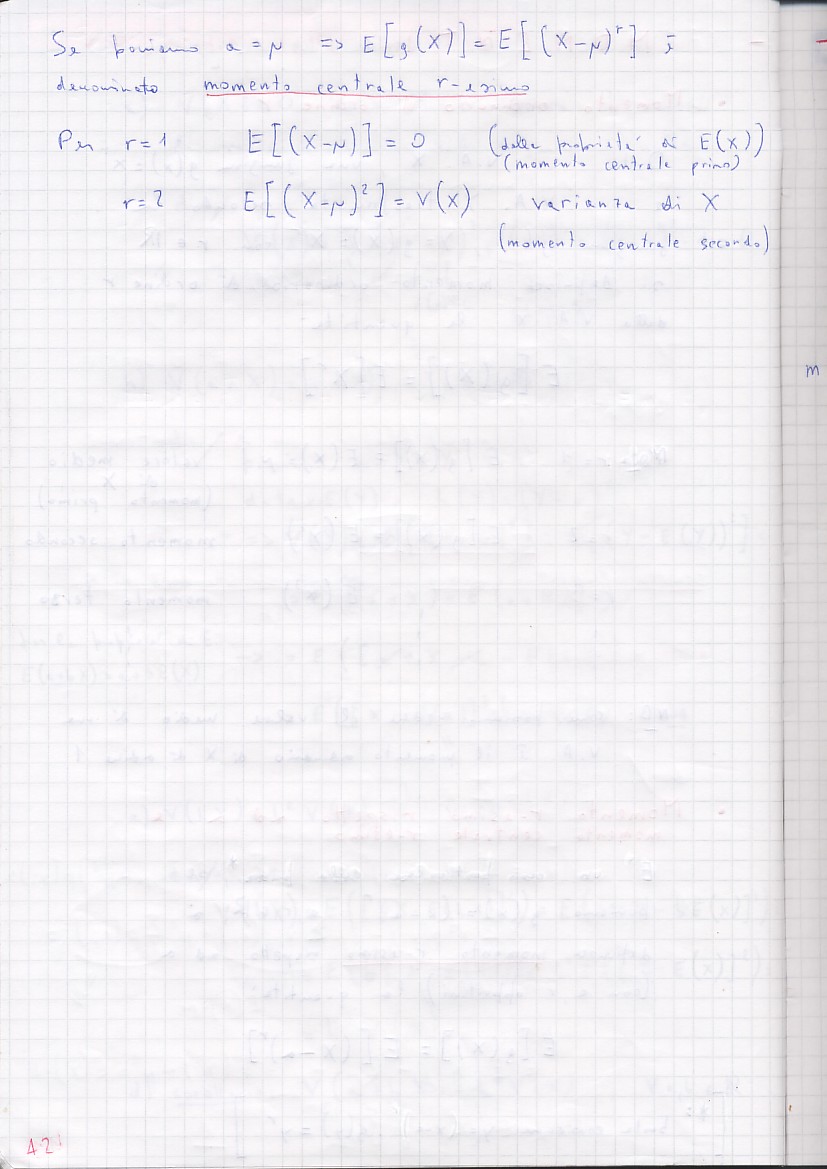 Se poniamo a = μ => E[g(X)] = E[(X-μ)^r] è
denominato momento centrale r-esimo
Per r=1 E[(X-μ)] = 0 (dalle proprietà di E(X))
(momento centrale primo)
r=2 E[(X-μ)²] = V(X) varianza di X
(momento centrale secondo)
m
42